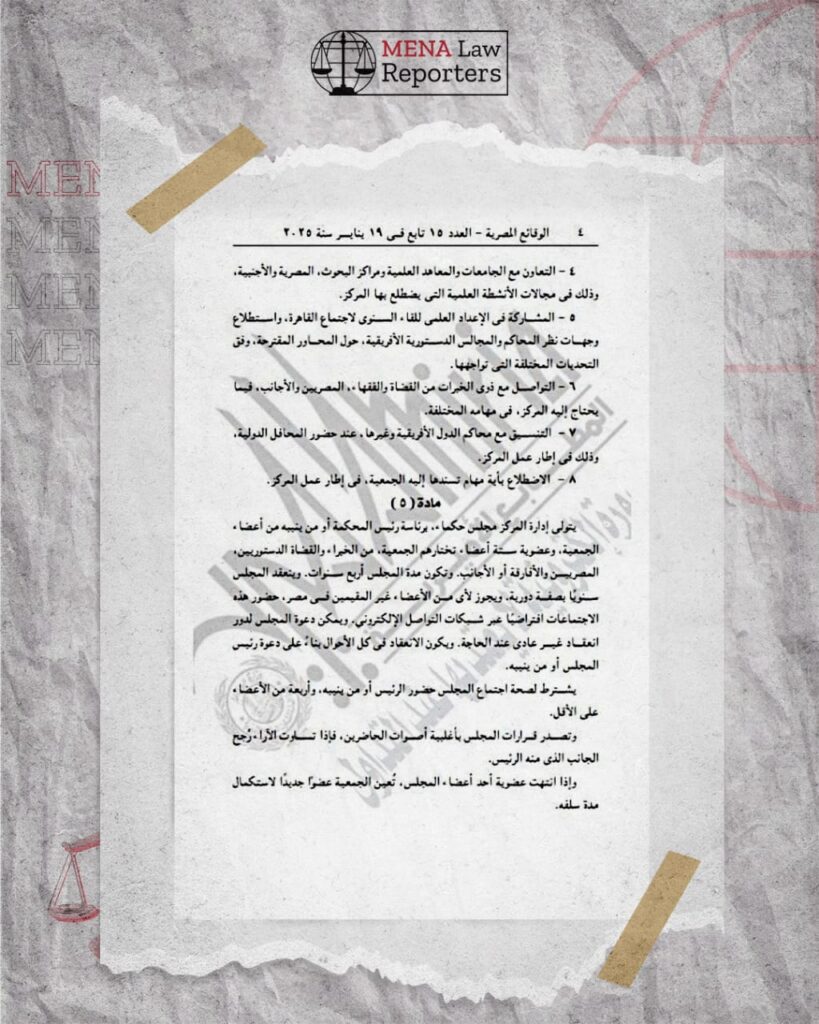 MENA Law
Reporters
MEN
MEN
MEN
MEN
٤ الوقائع المصرية - العدد ١٥ تابع فى ١٩ ينايـر سنة ٢٠٢٥
٤ - التعاون مع الجامعات والمعاهد العلمية ومراكز البحوث، المصرية والأجنبية،
وذلك فى مجالات الأنشطة العلمية التى يضطلع بها المركز.
٥ - المشـاركة فى الإعداد العلمى للقاء السنوى لاجتماع القاهرة، واسـتطلاع
وجهـات نظر المحاكم والمجالس الدستورية الأفريقية، حول المحاور المقترحة، وفق
التحديات المختلفة التى تواجهها.
٦ - التواصـل مع ذوى الخبرات من القضاة والفقهاء، المصريين والأجانب، فيما
يحتاج إليه المركز، فى مهامه المختلفة.
٧ - التنسـيق مع محاكم الدول الأفريقية وغيرها، عند حضور المحافل الدولية،
وذلك فى إطار عمل المركز.
٨ - الاضطلاع بأية مهام تسندها إليه الجمعية، فى إطار عمل المركز.
مادة ( ٥ )
يتولى إدارة المركز مجلس حكماء، برئاسة رئيس المحكمة أو من ينيبه من أعضاء
الجمعية، وعضوية ستة أعضاء تختارهم الجمعية، من الخبراء والقضاة الدستوريين،
المصرييـن والأفارقة أو الأجانب. وتكون مدة المجلس أربع سـنوات. وينعقد المجلس
سنويًا بصفـة دورية. ويجوز لأى مـن الأعضاء غير المقيمين فـى مصر، حضور هذه
الاجتماعات افتراضيًا عبر شـبكات التواصل الإلكترونى. ويمكن دعوة المجلس لدور
انعقـاد غيـر عادى عند الحاجة. ويكون الانعقاد فى كل الأحوال بناءً على دعوة رئيس
المجلس أو من ينيبه.
يشـترط لصحة اجتماع المجلس حضور الرئيس أو من ينيبه، وأربعة من الأعضاء
على الأقل.
وتصـدر قـرارات المجلس بأغلبية أصـوات الحاضرين، فإذا تسـاوت الآراء رُجح
الجانب الذى منه الرئيس.
وإذا انتهت عضوية أحد أعضاء المجلس، تُعين الجمعية عضوًا جديدًا لاستكمال
مدة سلفه.